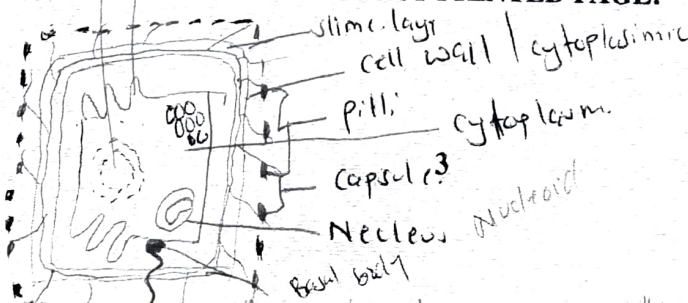 PAGE.
slime layr
cell wall | cytoplasimic
pilli
cytoplasm.
capsule?
Necleus Nucleoid
Basal body